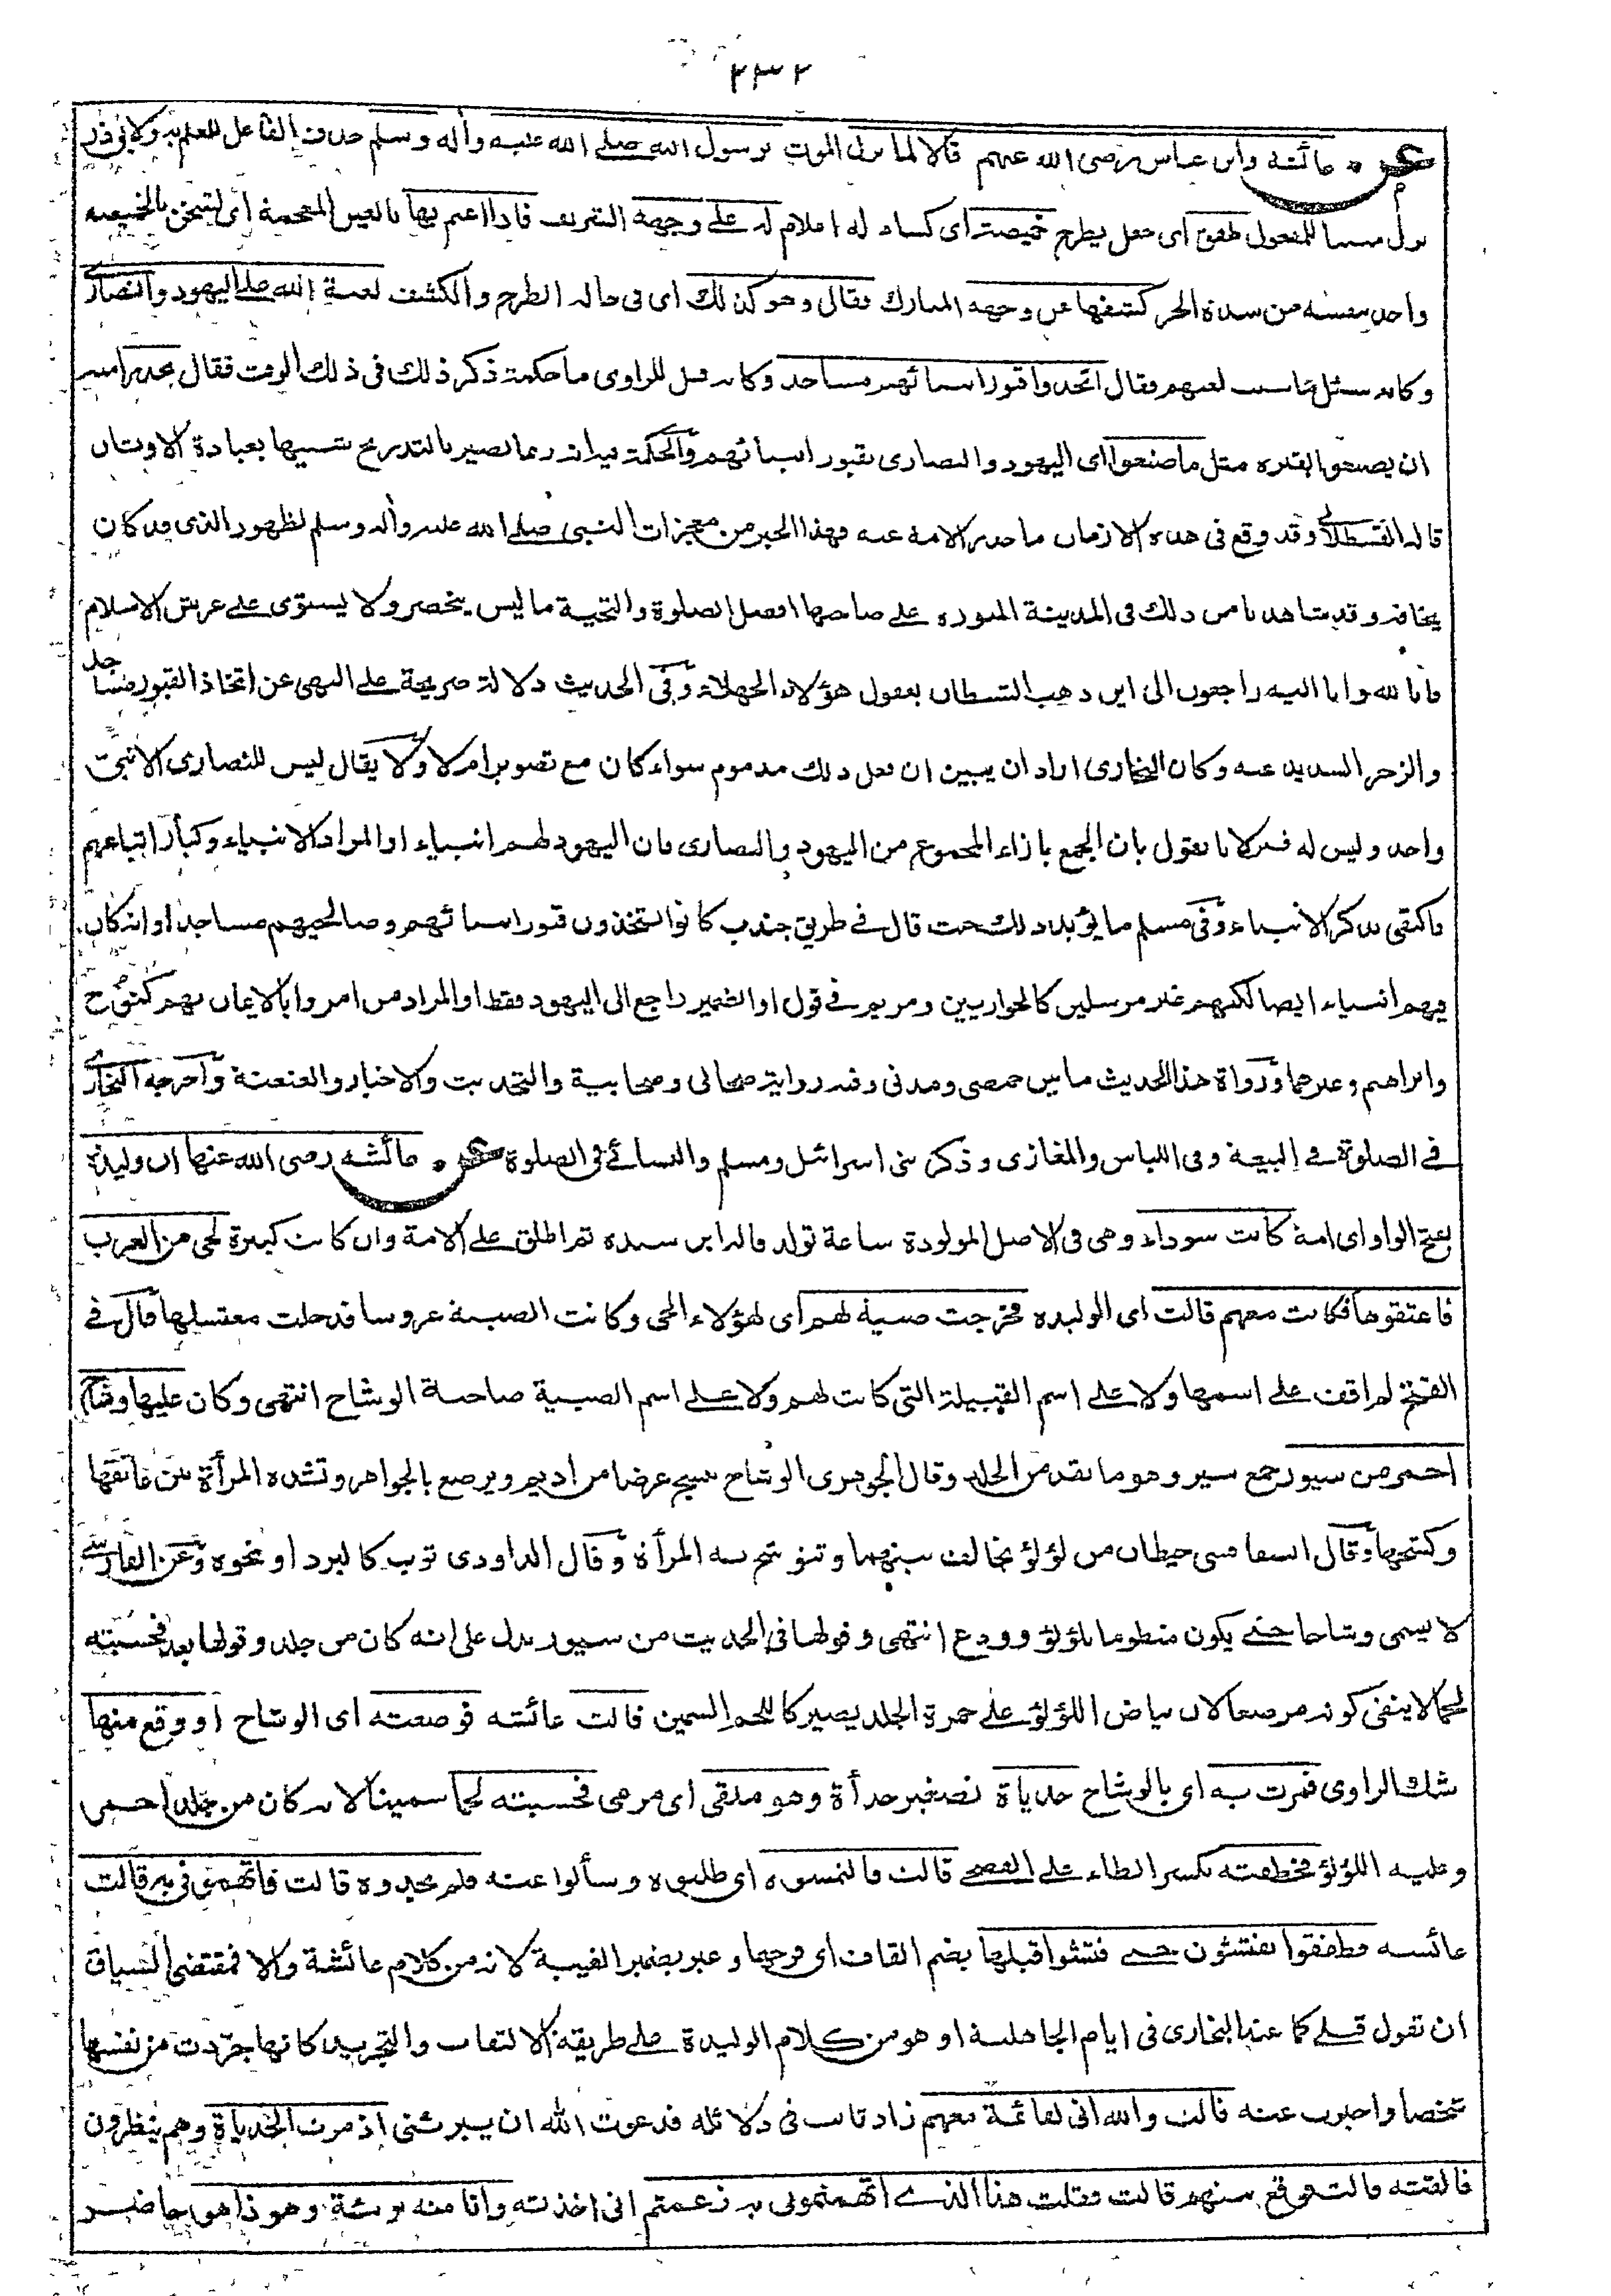 ٢٣٢
عن عائشة وابن عباس رضى الله عنهم قالا لما نزل الموت برسول الله صلے الله عليه واله وسلم حذف الفاعل للعلم به ولابى ذر
نزل مبنيا للمفعول طفق اى جعل يطرح خميصة اى كساء له اعلام له علے وجهه الشريف فاذا اغتم بها بالغين المعجمة اى تسخن بالخميصة
واخذ بنفسه من شدة الحر كشفها عن وجهه المبارك فقال وهو كذلك اى فى حالة الطرح والكشف لعنة الله علے اليهود والنصارے
وكانه سئل ما سبب لعنهم فقال اتخذوا قبور انبيائهم مساجد وكانه قيل للراوى ما حكمة ذكر ذلك فى ذلك الوقت فقال يحذر امته
ان يصنعوا بقبره مثل ما صنعوا اى اليهود والنصارى بقبور انبيائهم والحكمة فيه انه ربما يصير بالتدريج شبيها بعبادة الاوثان
قاله القسطلانے وقد وقع فى هذه الازمان ما حذر الامة عنه فهذا الخبر من معجزات النبى صلے الله عليه واله وسلم لظهور الذى قد كان
يخافه وقد شاهدنا من ذلك فى المدينة المنورة على صاحبها افضل الصلوة والتحية ما ليس ينحصر ولا يستوى على عرش الاسلام
فانا لله وانا اليه راجعون الى اين ذهب الشيطان بعقول هؤلاء الجهلاء وفى الحديث دلالة صريحة علے النهى عن اتخاذ القبور مساجد
والزجر الشديد عنه وكان البخارى اراد ان يبين ان فعل ذلك مذموم سواء كان مع تصوير ام لا ولا يقال ليس للنصارى الا نبى
واحد وليس له قبر لانا نقول بان الجمع بازاء المجموع من اليهود والنصارى فان اليهود لهم انبياء او المراد الانبياء وكبار اتباعهم
فاكتفى بذكر الانبياء وفى مسلم ما يؤيد ذلك حيث قال فے طريق جندب كانوا يتخذون قبور انبيائهم وصالحيهم مساجد او انه كان
فيهم انبياء ايضا لكنهم غير مرسلين كالحواريين ومريم فے قول او الضمير راجع الى اليهود فقط او المراد من امروا بالايمان بهم كنوح
وابراهيم وغيرهما ورواة هذا الحديث ما بين حمصى ومدنى وفيه رواية صحابى وصحابية والتحديث والاخبار والعنعنة واخرجه البخارے
فے الصلوة فے البيعة وفى اللباس والمغازى وذكر بنى اسرائيل ومسلم والنسائے فى الصلوة عن عائشة رضى الله عنها ان وليدة
بفتح الواو اى امة كانت سوداء وهى فى الاصل المولودة ساعة تولد قاله ابن سيده ثم اطلق على الامة وان كانت كبيرة لحى من العرب
فاعتقوها فكانت معهم قالت اى الوليدة فخرجت صبية لهم اى لهؤلاء الحى وكانت الصبية عروسا فدخلت مغتسلها قال فے
الفتح لم اقف على اسمها ولا على اسم القبيلة التى كانت لهم ولا علے اسم الصبية صاحبة الوشاح انتهى وكان عليها وشاح
احمر من سيور جمع سير وهو ما يقد من الجلد وقال الجوهرى الوشاح ينسج عرضا من اديم ويرصع بالجواهر وتشده المرأة بين عاتقها
وكشحها وقال السفاقسى خيطان من لؤلؤ يخالف بينهما وتتوشح به المرأة وقال الداودى ثوب كالبرد او نحوه وعن الفارسے
لا يسمى وشاحا حتے يكون منظوما بلؤلؤ وودع انتهى وقولها فى الحديث من سيور يدل على انه كان من جلد وقولها بعد فحسبته
لحما لا ينفى كونه مرصعا لان بياض اللؤلؤ على حمرة الجلد يصير كاللحم السمين قالت عائشة فوضعته اى الوشاح او وقع منها
شك الراوى فمرت به اى بالوشاح حدياة تصغير حدأة وهو ملقى اى مرمى فحسبته لحما سمينا لانه كان من جلد احمر
وعليه اللؤلؤ فخطفته بكسر الطاء على الفصح قالت فالتمسوه اى طلبوه وسألوا عنه فلم يجدوه قالت فاتهمونى به قالت
عائشة فطفقوا يفتشون حتے فتشوا قبلها بضم القاف اى فرجها وعبر بضمير الغيبة لانه من كلام عائشة والا فمقتضى السياق
ان تقول قبلے كما عند البخارى فى ايام الجاهلية او هو من كلام الوليدة علے طريقة الالتفات والتجريد كانها جردت من نفسها
شخصا واخبرت عنه قالت والله انى لقائمة معهم زاد ثابت فى دلائله فدعوت الله ان يبرئنى اذ مرت الحدياة وهم ينظرون
فالقته قالت فوقع بينهم قالت فقلت هذا الذے اتهمتمونى به زعمتم انى اخذته وانا منه بريئة وهو ذا هو حاضر